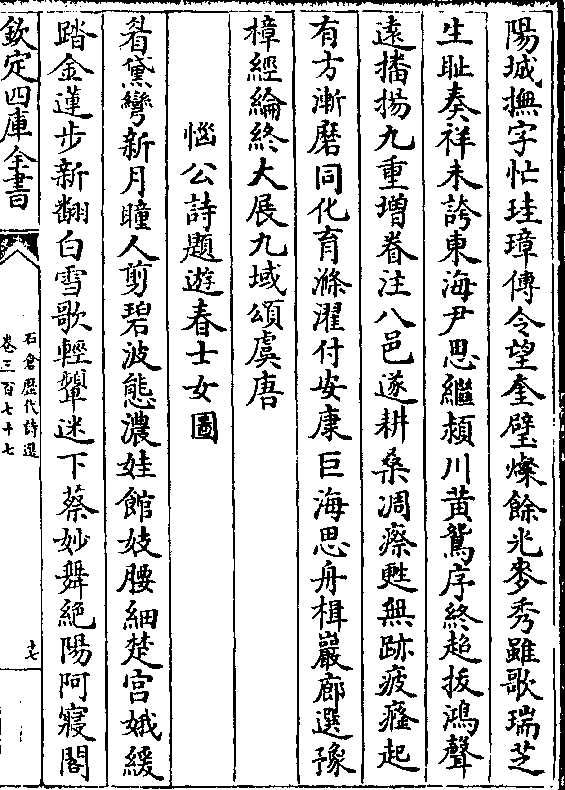 陽城撫字忙珪璋傳令望奎璧燦餘光麥秀雖歌瑞芝
生耻奏祥未誇東海尹思繼潁川黄鴛序終超拔鴻聲
遠播揚九重增眷注八邑遂耕桑凋瘵甦無跡疲癃起
有方漸磨同化育滌濯付安康巨海思舟楫巖廊選豫
樟經綸終大展九域頌虞唐
惱公詩題遊春士女圖
眉黛彎新月瞳人剪碧波態濃娃館妓腰細楚宫娥緩
踏金蓮步新翻白雪歌輕顰迷下蔡妙舞絶陽阿寢閣
欽定四庫全書
石倉歴代詩選
卷三百七十七
十七